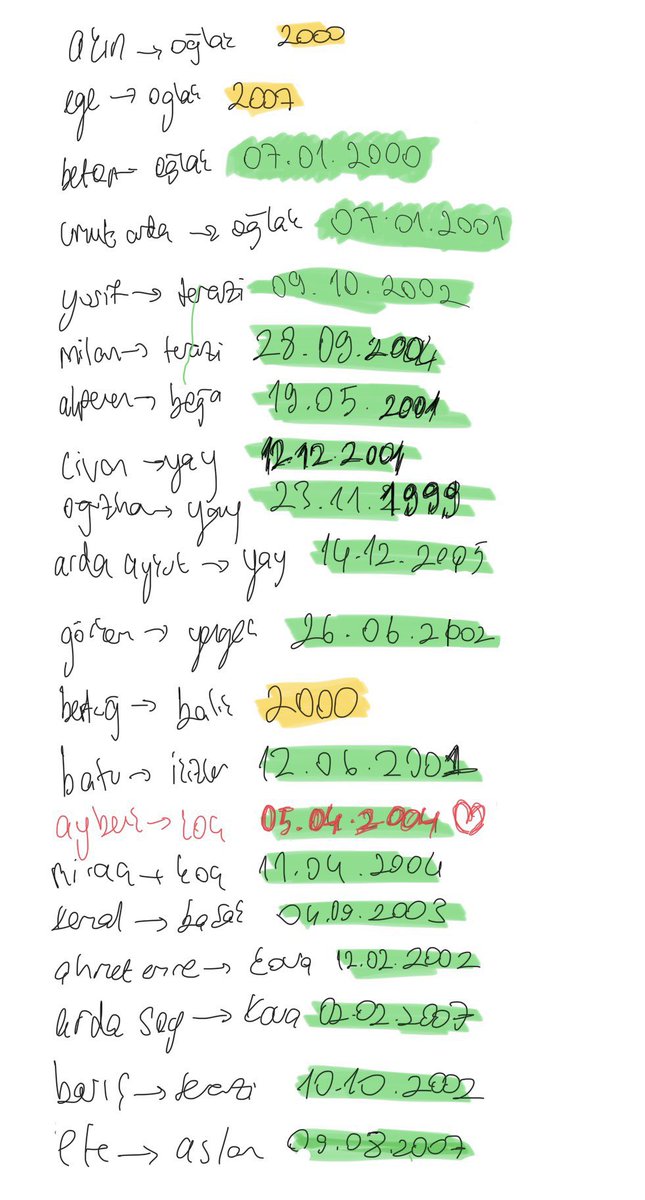 akın → oğlak 2000
ege → oğlak 2007
betkan → oğlak 07.01.2000
umut arda → oğlak 07.01.2001
yusuf → terazi 09.10.2002
milan → terazi 28.09.2004
alperen → boğa 19.05.2001
civan → yay 12.12.2001
oğuzhan → yay 23.11.1999
arda aykut → yay 14.12.2005
görkem → yengeç 26.06.2002
bertuğ → balık 2000
batu → ikizler 12.06.2001
ayberk → koç 05.04.2004 ♡
miraç → koç 11.04.2004
kemal → başak 04.09.2003
ahmet emre → kova 12.02.2002
arda → kova 02.02.2007
barış → terazi 10.10.2002
efe → aslan 09.08.2007